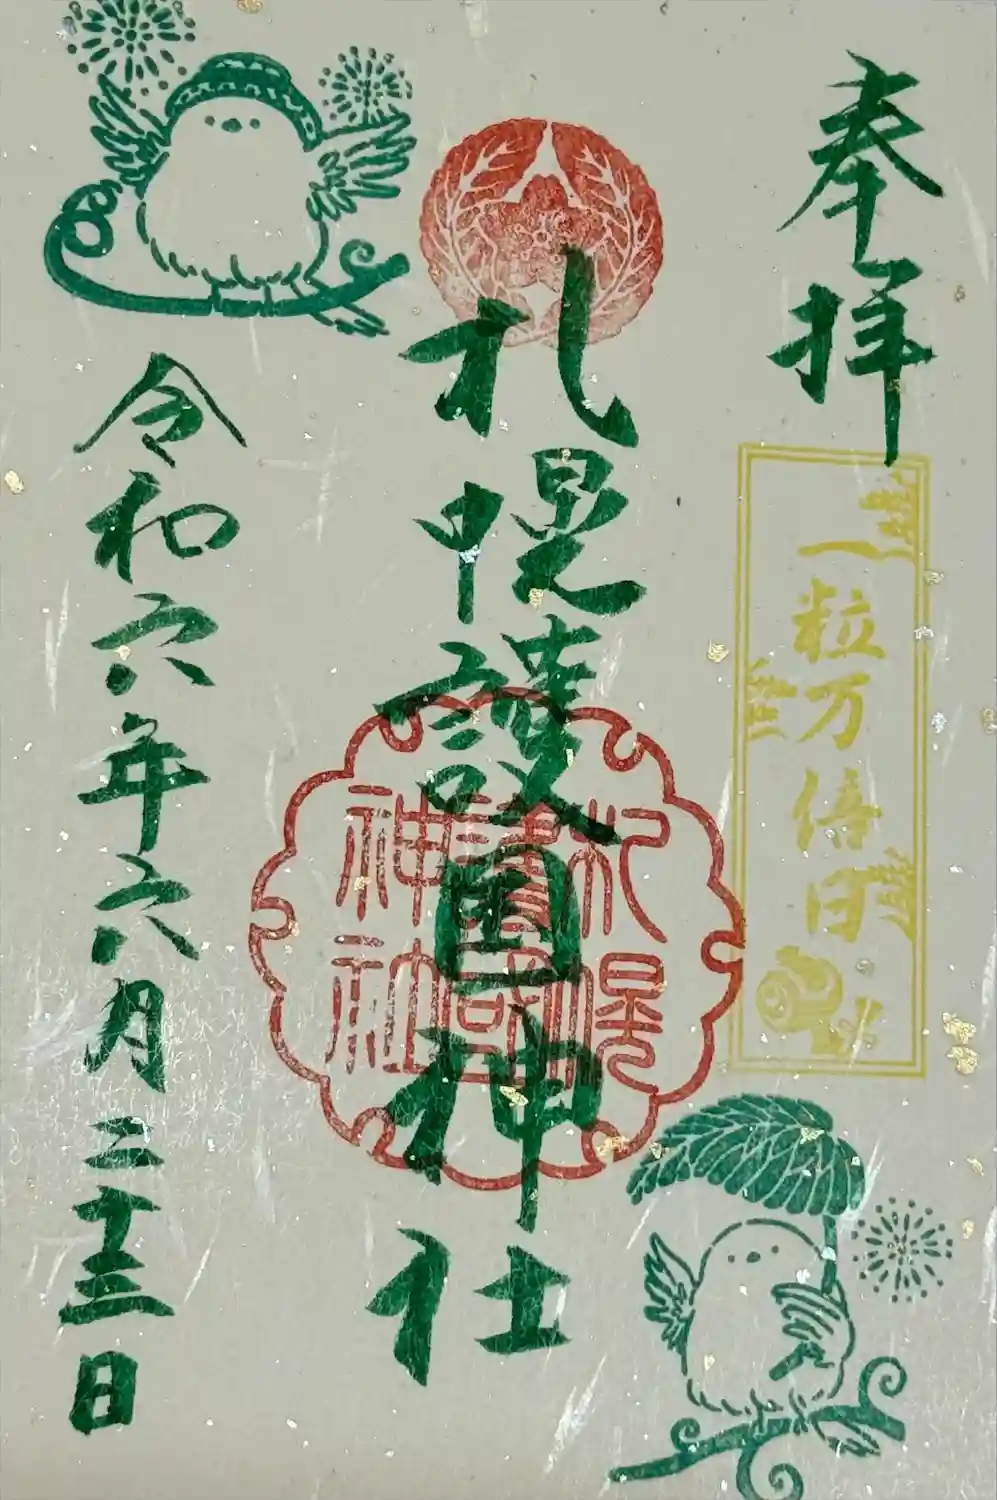 奉拝
一粒万倍日
札幌護国神社
札幌
護國
神社
令和六年六月二十三日